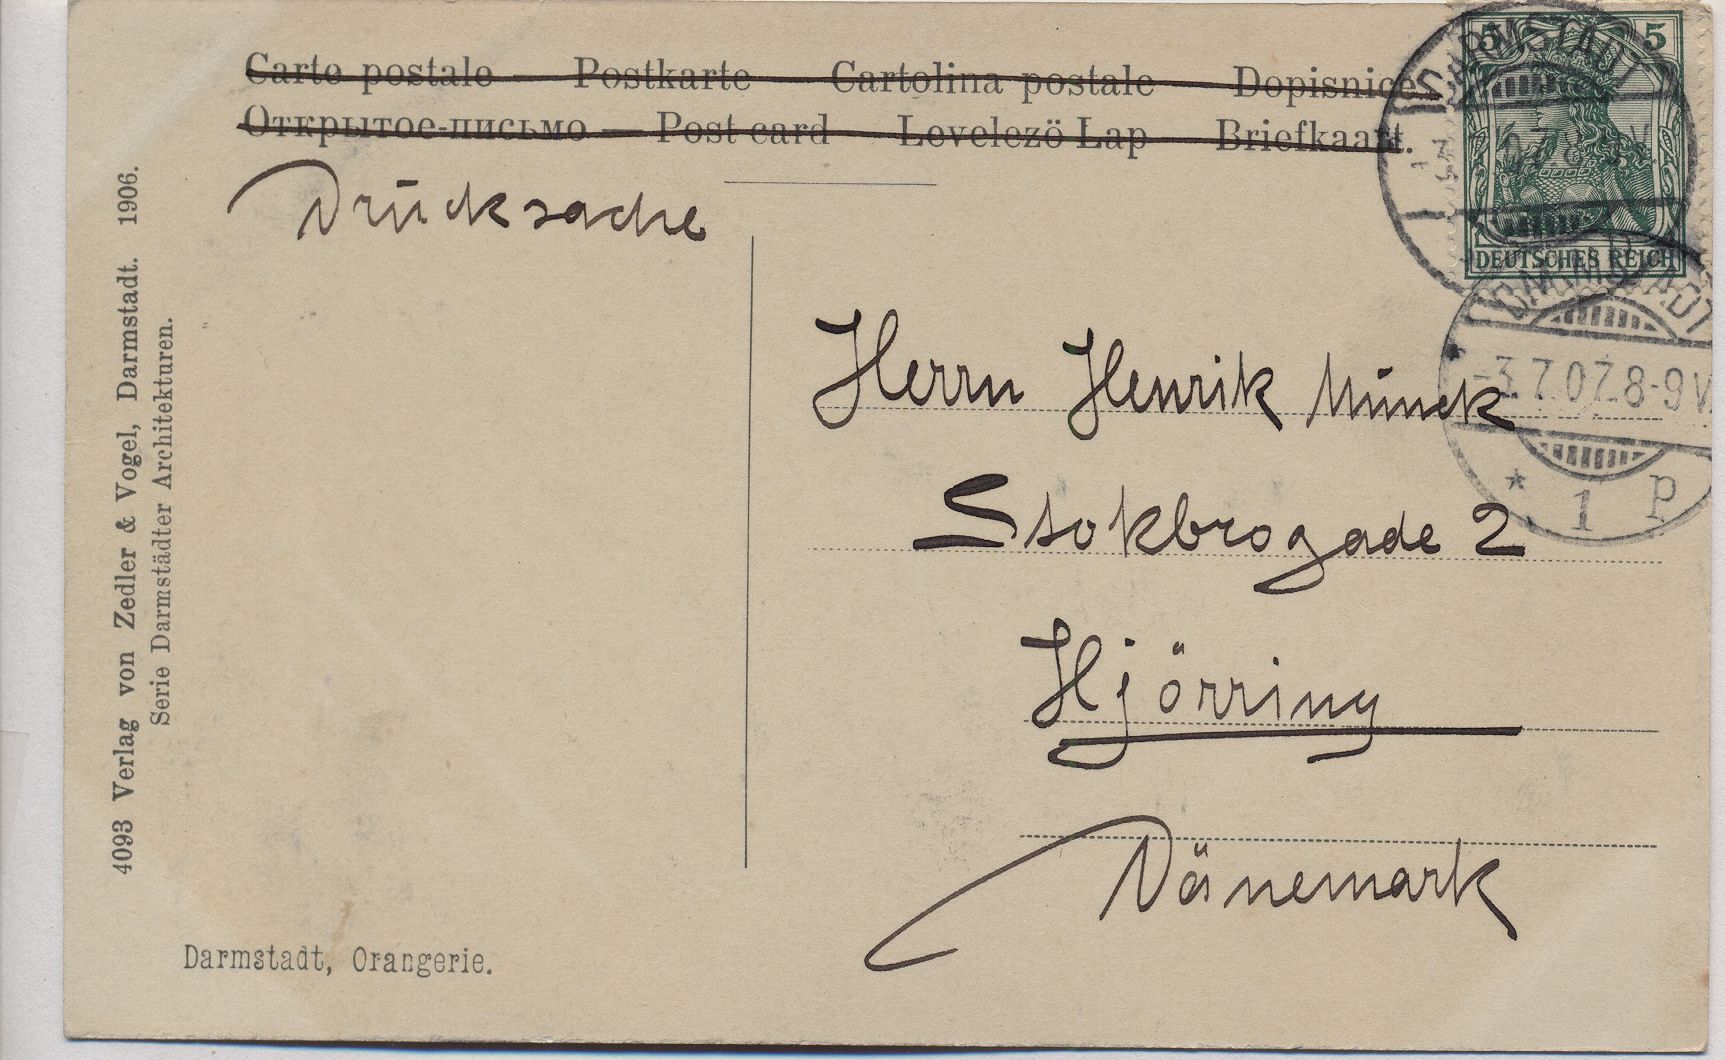 Carte postale — Postkarte Cartolina postale Dopisnice
Открытое-письмо — Post card Levelezö Lap Briefkaart.
Drucksache
5 5
DEUTSCHES REICH
DARMSTADT
DARMSTADT
-3.7.07.8-9V.
* 1 P
Herrn Henrik Munck
Stokbrogade 2
Hjörring
Dänemark
4093 Verlag von Zedler & Vogel, Darmstadt. 1906.
Serie Darmstädter Architekturen.
Darmstadt, Orangerie.